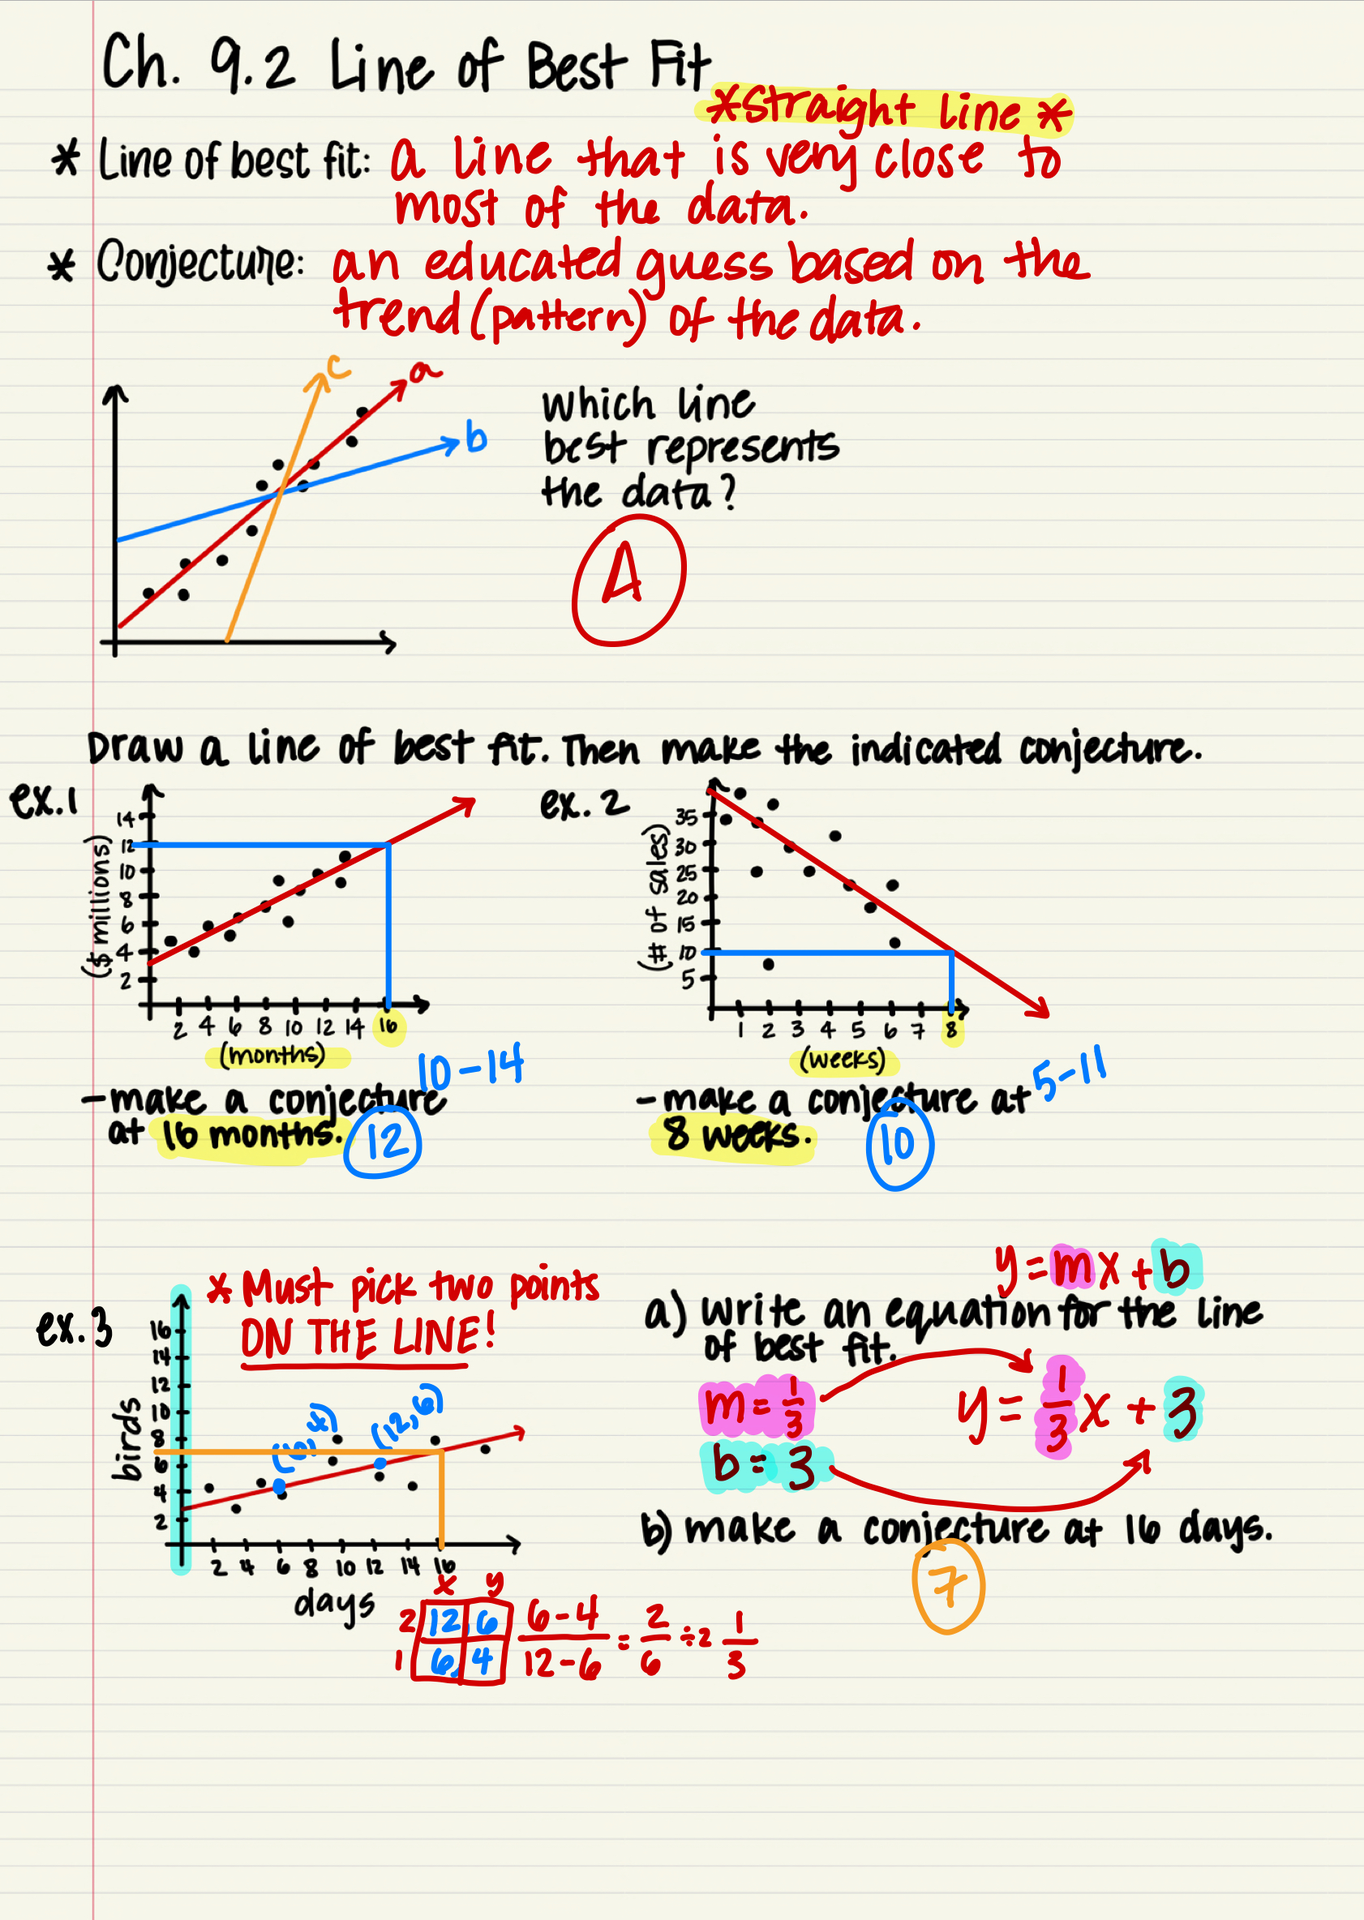 Ch. 9.2 Line of Best Fit
*Straight Line*
* Line of best fit: a line that is very close to
most of the data.
* Conjecture: an educated guess based on the
trend (pattern) of the data.
c
a
b
which line
best represents
the data?
A
Draw a line of best fit. Then make the indicated conjecture.
ex. 1
($ millions)
14
12
10
8
6
4
2
2 4 6 8 10 12 14 16
(months)
10-14
-make a conjecture
at 16 months. 12
ex. 2
(# of sales)
35
30
25
20
15
10
5
1 2 3 4 5 6 7 8
(weeks)
5-11
-make a conjecture at
8 weeks. 10
ex. 3
* Must pick two points
ON THE LINE!
birds
16
14
12
10
8
6
4
2
(12,6)
2 4 6 8 10 12 14 16
days
x y
2 12, 6
1 6, 4
6-4
12-6
= 2/6 ÷2 1/3
y=mx+b
a) write an equation for the line
of best fit.
m = 1/3
y = 1/3 x + 3
b = 3
b) make a conjecture at 16 days.
7